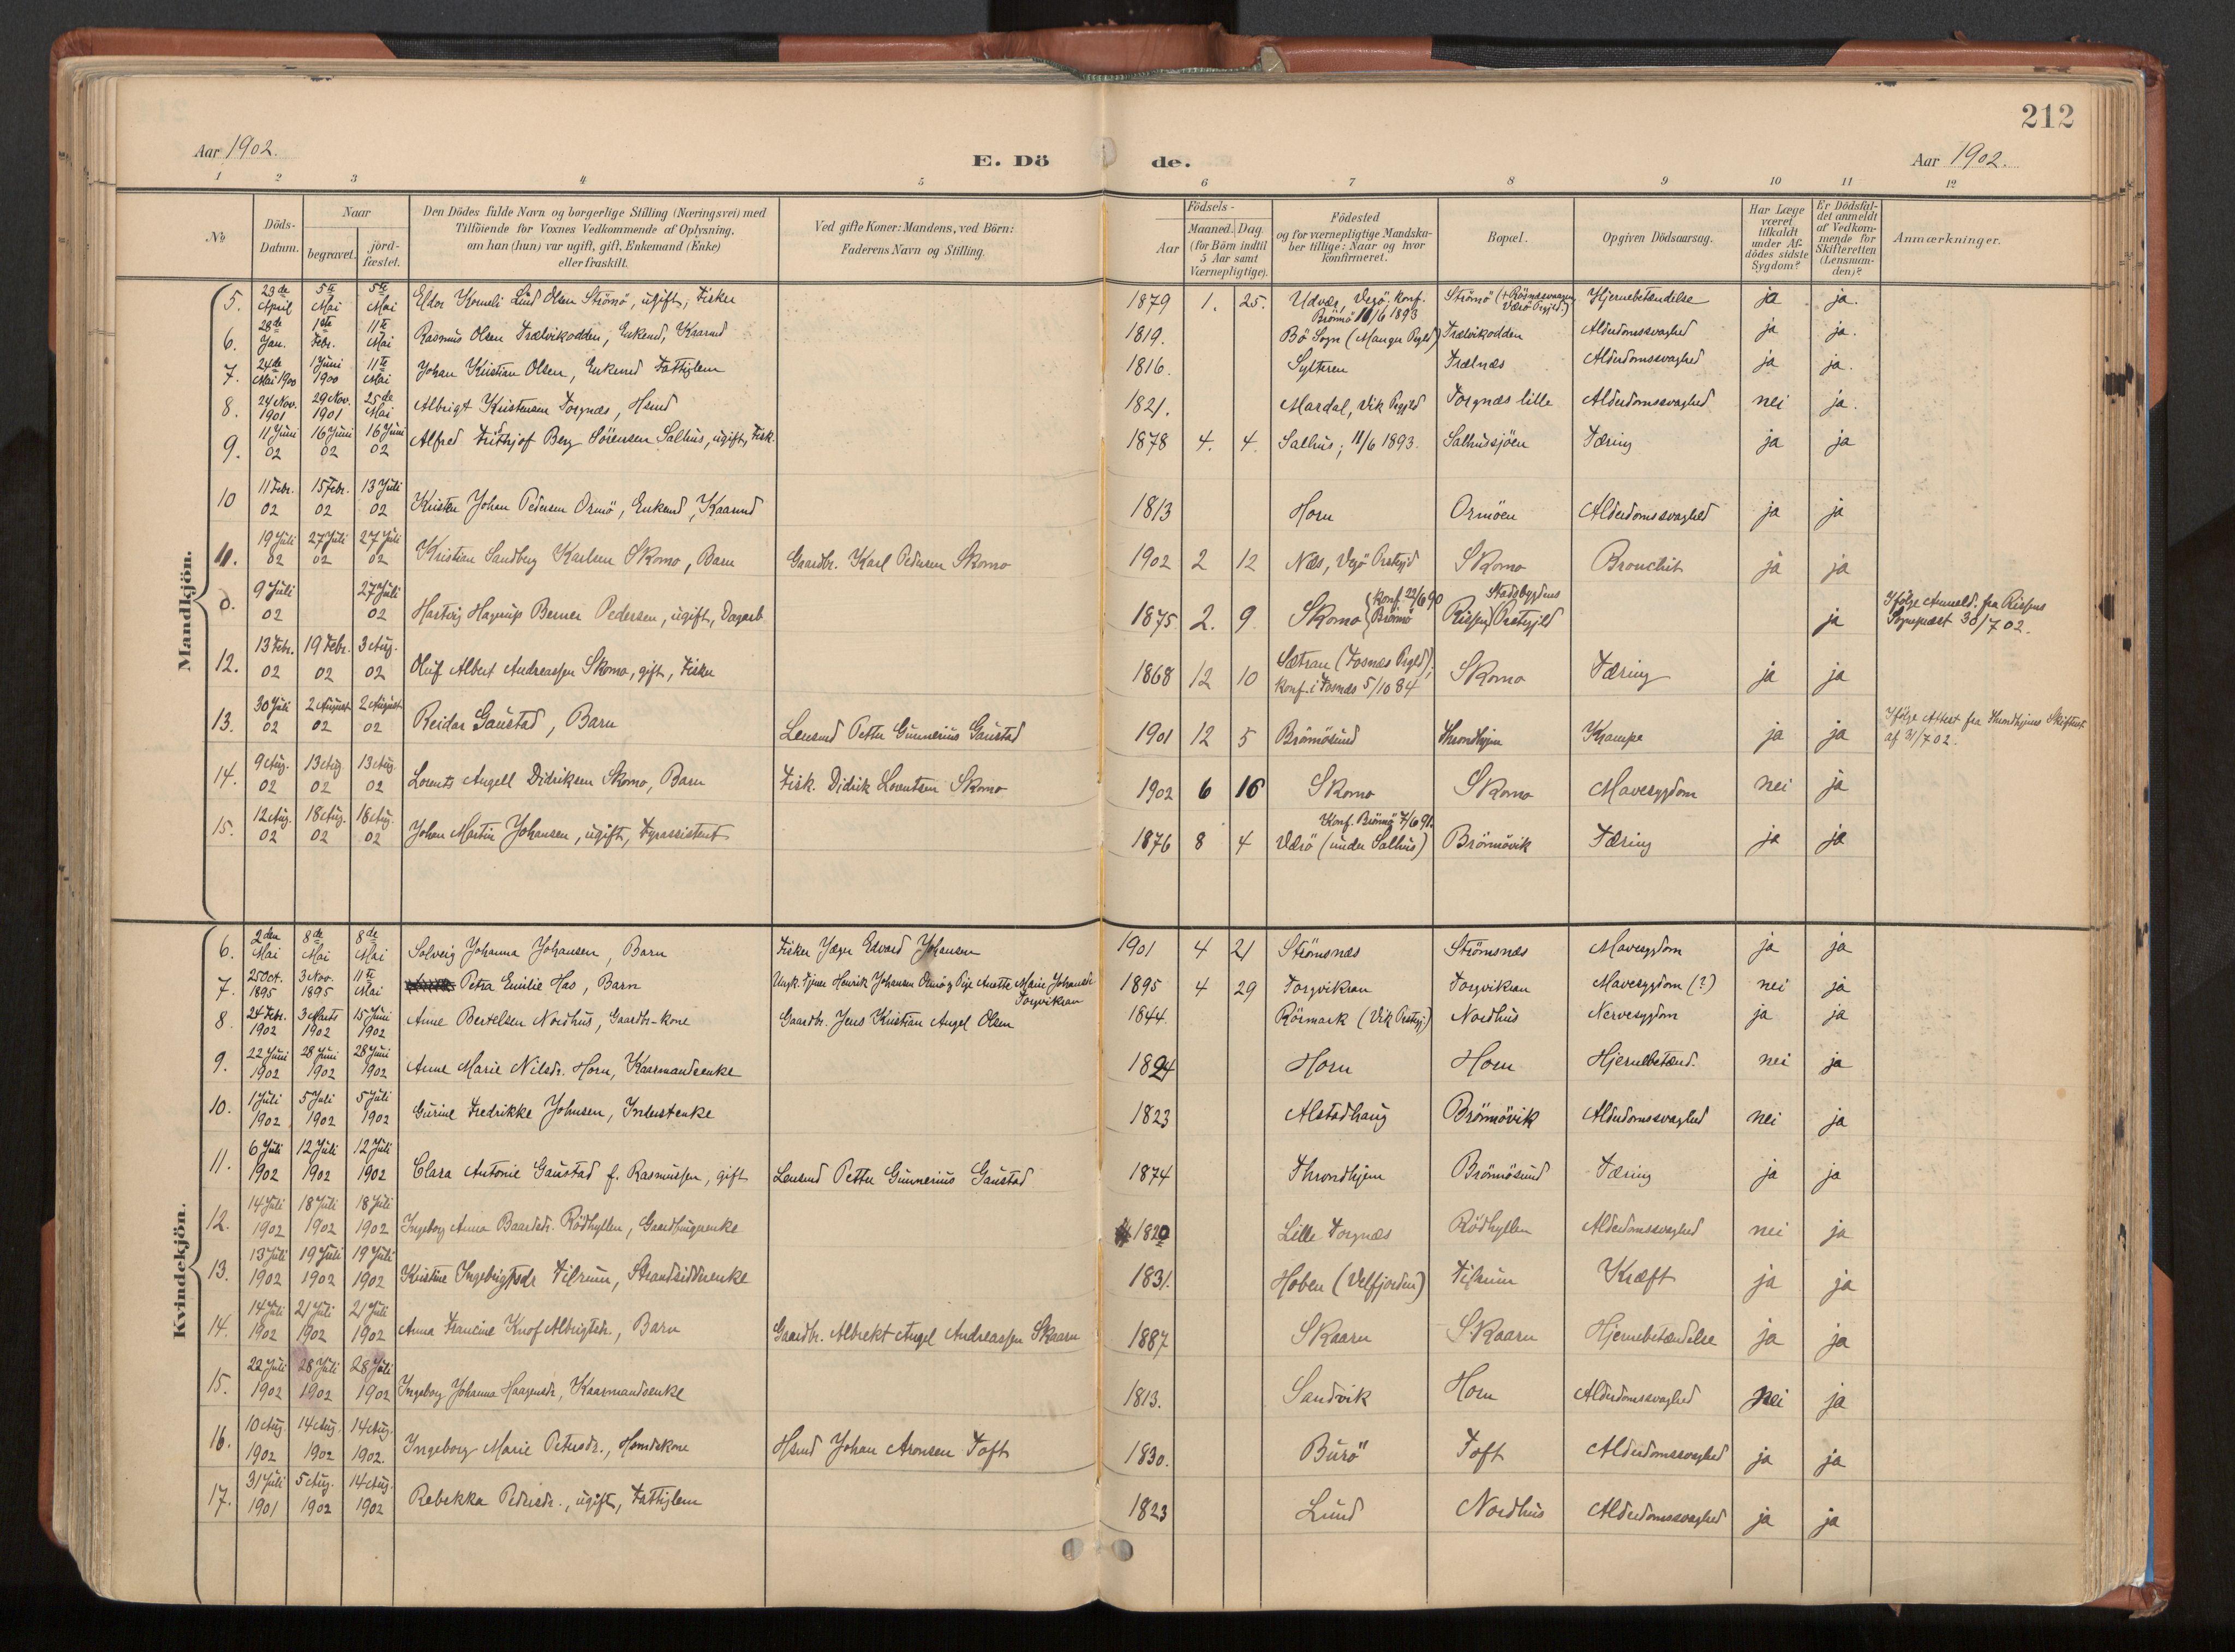 212
Aar 1902.
E. Döde.
Aar 1902.
1 2 3 4 5 6 7 8 9 10 11 12
№
Döds-Datum.
Naar
begravet.
jord-fæstet.
Den Dödes fulde Navn og borgerlige Stilling (Næringsvei) med
Tilföiende for Voxnes Vedkommende af Oplysning,
om han (hun) var ugift, gift, Enkemand (Enke)
eller fraskilt.
Ved gifte Koner: Mandens, ved Börn:
Faderens Navn og Stilling.
Födsels-
Aar
Maaned.
Dag
(for Börn indtil
5 Aar samt
Værnepligtige).
Födested
og for værnepligtige Mandska-
ber tillige: Naar og hvor
konfirmeret.
Bopæl.
Opgiven Dödsaarsag.
Har Læge
været
tilkaldt
under Af-
dödes sidste
Sygdom?
Er Dödsfal-
det anmeldt
af Vedkom-
mende for
Skifteretten
(Lensman-
den)?
Anmærkninger.
Mandkjön.
5. 23de April 5te Mai 5te Mai Eldor Korneli Lund Olsen Strömö, ugift, Fisker 1879 1. 25. Udvær, Vegö, konf. Brönnö 11/6 1893 Strömö Hjernebetændelse ja ja.
6. 28de Jan. 1ste Febr. 11te Mai Rasmus Olsen Trælvikodden, Enkemd, Kaarmd 1819. Bö Sogn (Manger Prgld) Trælvikodden Alderdomssvaghed ja ja.
7. 24de Mai 1900 1 Juni 1900 11te Mai Johan Kristian Olsen, Enkemd Fattiglem 1816. Sylteren Trælnæs Alderdomssvaghed ja ja.
8. 24 Nov. 1901 29 Nov. 1901 25de Mai Albrigt Kristensen Torgnæs, Hsmd 1821. Mardal, Vik Prgjld Torgnæs lille Alderdomssvaghed nei ja.
9. 11 Juni 02 16 Juni 02 16 Juni 02 Alfred Fridthjof Berg Sörensen Salhus, ugift, Fisk. 1878 4. 4. Salhus; 11/6 1893. Salhussjöen Tæring ja ja
10 11 Febr. 02 15 Febr. 02 13 Juli 02 Kristen Johan Pedersen Ormö, Enkemd, Kaarmd 1813 Horn Ormöen Alderdomssvaghed ja ja
11. 19 Juli 02 27 Juli 02 27 Juli 02 Kristian Sandberg Karlsen Skomo, Barn Gaardbr. Karl Pedersen Skomo 1902 2 12 Næs, Vegö Prstgjd Skomo Bronchit ja ja
0. 9 Juli 02 27 Juli 02 Hartvig Hagrup Berner Pedersen, ugift, Dagarb. 1875 2. 9. Skomo konf. 22/6 90 Brönnö Rissen Stadsbygdens Prstgjeld ja Ifölge Anmeld. fra Rissens Sognepræst 30/7 02.
12. 13 Febr. 02 19 Febr. 02 3 Aug. 02 Oluf Albert Andreassen Skomo, gift, Fisker 1868 12 10 Sætran (Fosnæs Prgld), konf. i Fosnæs 5/10 84 Skomo Tæring ja ja
13. 30 Juli 02 2 August 02 2 August 02 Reidar Gaustad, Barn Lensmd Petter Gunnerius Gaustad 1901 12 5 Brönnösund Throndhjem Krampe ja ja Ifölge Attest fra Throndhjems Skifteret af 31/7 02.
14. 9 Aug. 02 13 Aug 02 13 Aug. 02 Lorents Angell Didriksen Skomo, Barn Fisk. Didrik Lorentsen Skomo 1902 6 16 Skomo Skomo Mavesygdom nei ja
15. 12 Aug. 02 18 Aug. 02 18 Aug. 02 Johan Martin Johansen, ugift, Fyrassistent 1876 8 4 Værö (under Salhus) Konf. Brönnö 7/6 91. Brönnövik Tæring ja ja
Kvindekjön.
6. 2den Mai 8de Mai 8de Mai Solveig Johanna Johansen, Barn Fisker Jæger Edvard Johansen 1901 4 21 Strömsnæs Strömsnæs Mavesygdom ja ja
7. 25 Oct. 1895 3 Nov. 1895 11te Mai Petra Emilie Has, Barn Ungk. Tjener Henrik Johansen Ormö og Pige Anette Marie Johansdr Torgvikran 1895 4 29 Torgvikran Torgvikran Mavesygdom (?) nei ja
8 24 Febr. 1902 3 Marts 1902 15 Juni 1902 Anne Bertelsen Nordhus, Gaardbr-kone Gaardbr. Jens Kristian Angel Olsen 1844. Rörmark (Vik Prstgj.) Nordhus Nervesygdom ja ja
9. 22 Juni 1902 28 Juni 1902 28 Juni 1902 Anne Marie Nilsdr. Horn, Kaarmandsenke 1824 Horn Horn Hjernebetænd. nei ja
10. 1 Juli 1902 5 Juli 1902 5 Juli 1902 Gurine Fredrikke Johnsen, Inderstenke 1823 Alstadhaug Brönnövik Alderdomssvaghed nei ja
11. 6 Juli 1902 12 Juli 1902 12 Juli 1902 Clara Antonie Gaustad f. Rasmussen, gift Lensmd Petter Gunnerius Gaustad 1874 Throndhjem Brönnösund Tæring ja ja
12. 14 Juli 1902 18 Juli 1902 18 Juli 1902 Ingeborg Anna Baardsdr. Rödhyllen, Gaardbrugerenke 1820 Lille Torgnæs Rödhyllen Alderdomssvaghed nei ja
13. 13 Juli 1902 19 Juli 1902 19 Juli 1902 Kristine Ingebrigtsdr Tilrum, Strandsidderenke 1831. Hoben (Velfjorden) Tilrum Kræft ja ja
14. 14 Juli 1902 21 Juli 1902 21 Juli 1902 Anna Francine Knof Albrigtsdr., Barn Gaardbr. Albrekt Angel Andreassen Skaarn 1887 Skaarn Skaarn Hjernebetændelse ja ja
15. 22 Juli 1902 28 Juli 1902 28 Juli 1902 Ingeborg Johanna Haagensdr, Kaarmandsenke 1813. Sandvik Horn Alderdomssvaghed nei ja
16. 10 Aug. 1902 14 Aug. 1902 14 Aug. 1902. Ingeborg Marie Petersdr., Hsmdskone Hsmd Johan Aronsen Toft 1830. Burö Toft Alderdomssvaghed ja ja
17. 31 Juli 1901 5 Aug. 1902 14 Aug. 1902 Rebekka Pedersdr., ugift, Fattiglem 1823 Lund Nordhus Alderdomssvaghed ja ja